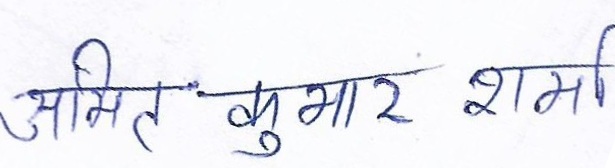 अमित कुमार शर्मा